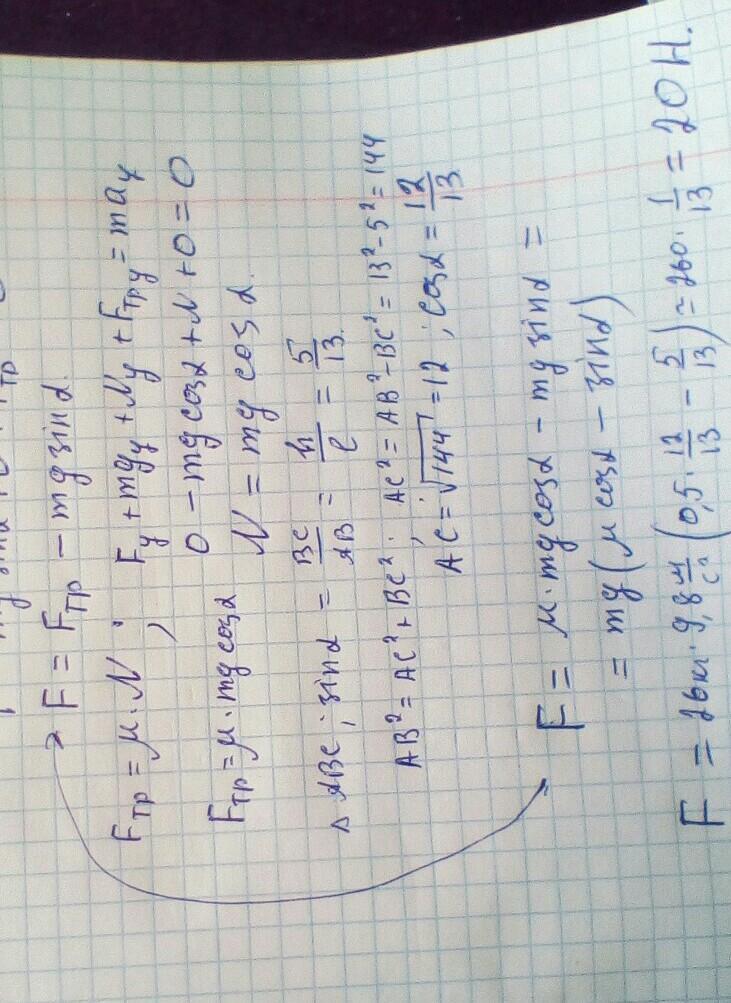 F = Fтр − mg sin α.
Fтр = μ·N ; Fy + mgy + Ny + Fтр y = m ay
0 − mg cos α + N + 0 = 0
Fтр = μ·mg cos α N = mg cos α.
△ ABC ; sin α = BC/AB = h/l = 5/13.
AB² = AC² + BC² ; AC² = AB² − BC² = 13² − 5² = 144
AC = √144 = 12 ; cos α = 12/13
F = μ·mg cos α − mg sin α =
= mg (μ cos α − sin α)
F = 26кг · 9,8 м/с² (0,5 · 12/13 − 5/13) = 260 · 1/13 = 20 Н.